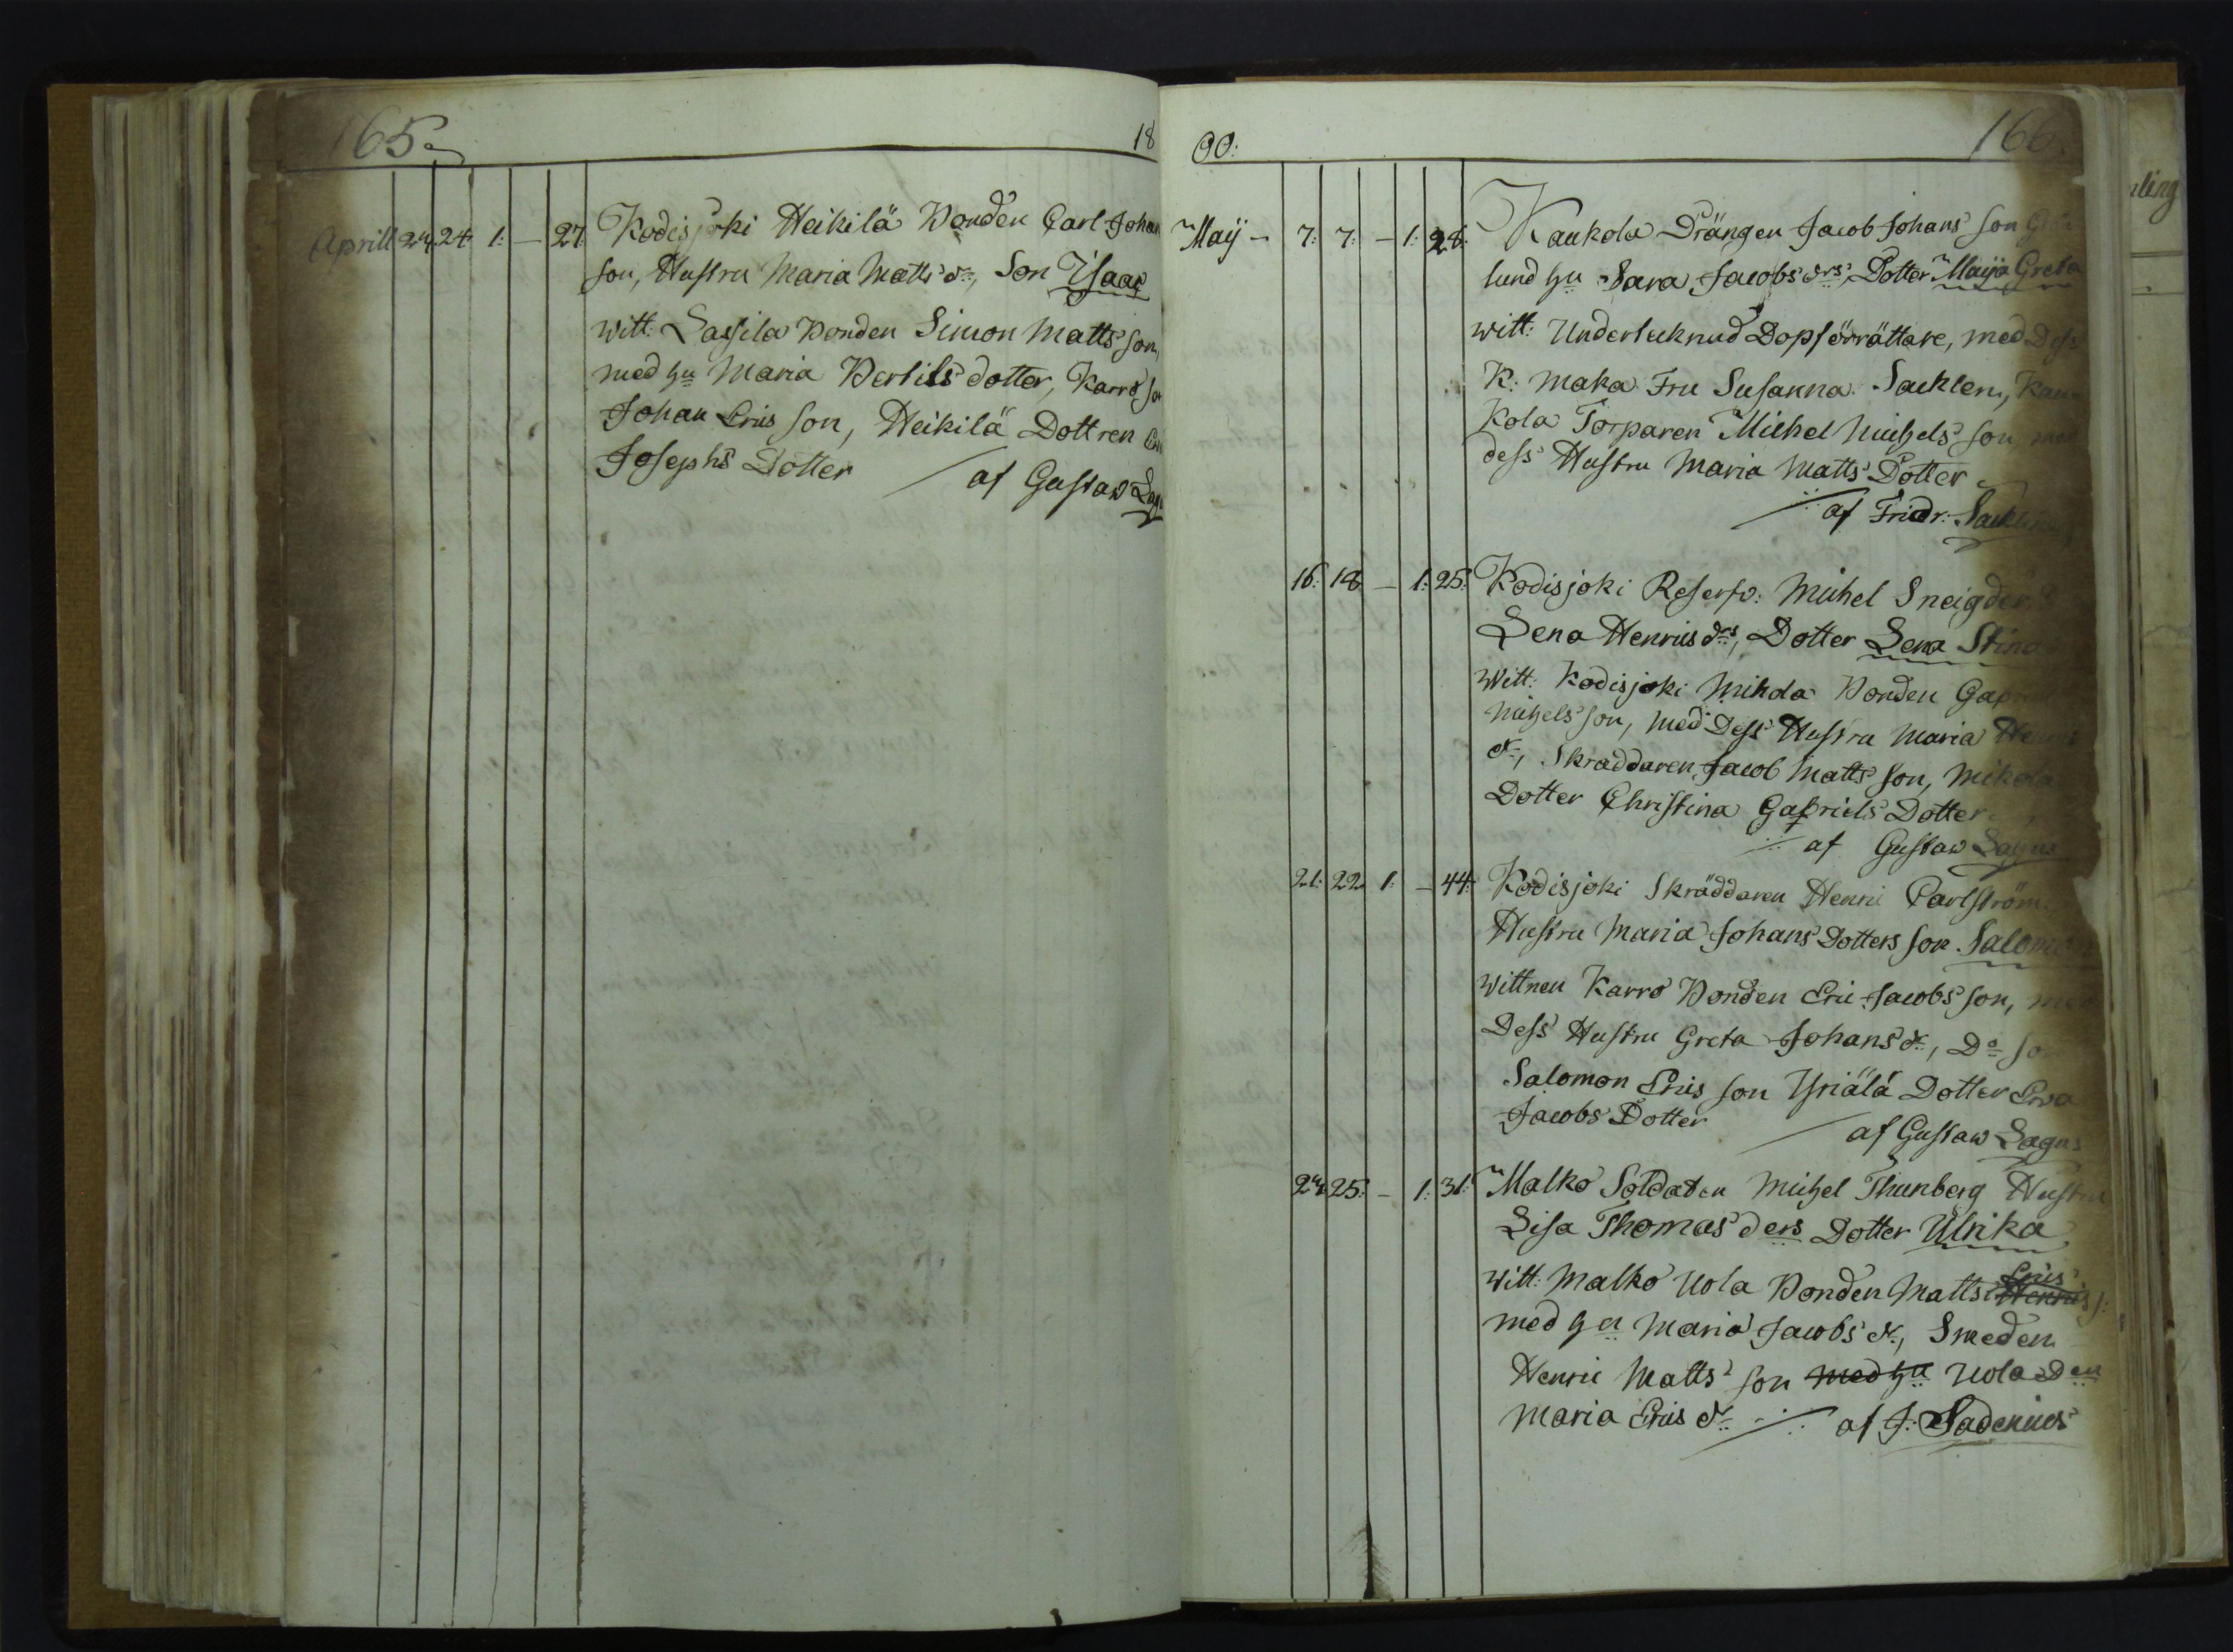 165.
18
Aprill 24. 24. 1: — 27. Kodisjoki Heikilä Bonden Carl Johan
son, Hustru Maria Matts dr, Son Isaac
witt: Lassila Bonden Simon Matts son,
med hu Maria Bertils dotter, Karro
Johan Erics son, Heikilä Dottren
Josephs Dotter af Gustaw
00:
166.
Maij — 7: 7: — 1: 28. Kaukola Drängen Jacob Johans son
lund hu Sara Jacobs drs, Dotter Maija Greta
witt: Undertecknud Dopförrättare, med Dess
K: maka Fru Susanna Sacklen, Kau-
kola Torparen Michel Michels son med
dess Hustru Maria Matts Dotter
af Fridr: Sacklen
16. 18. — 1: 25. Kodisjoki Reserfv: Michel Sneigder
Lena Henrics drs, Dotter Lena Stina
Witt: Kodisjoki Mikola Bonden
Michels son, med Dess Hustru Maria
dr, Skraddaren Jacob Matts son, Mikola
Dotter Christina Gabriels Dotter
af Gustaw Lagus
21: 22. 1: — 44: Kodisjoki Skräddaren Henric Carlström
Hustru Maria Johans Dotters son Salomon
wittnen Karro Bonden Eric Jacobs son, med
Dess Hustru Greta Johans dr, Do
Salomon Erics son Yriälä Dotter Ewa
Jacobs Dotter af Gustaw Lagus
24. 25. — 1: 31. Malko Soldaten Michel Thunberg Hustru
Lisa Thomas ders Dotter Ulrika
Erics
witt: Malko Uola Bonden Matts Henrics s:
med hu Maria Jacobs dr, Smeden
Henric Matts son med hu Uola Den
Maria Erics dr af J: Sadenius